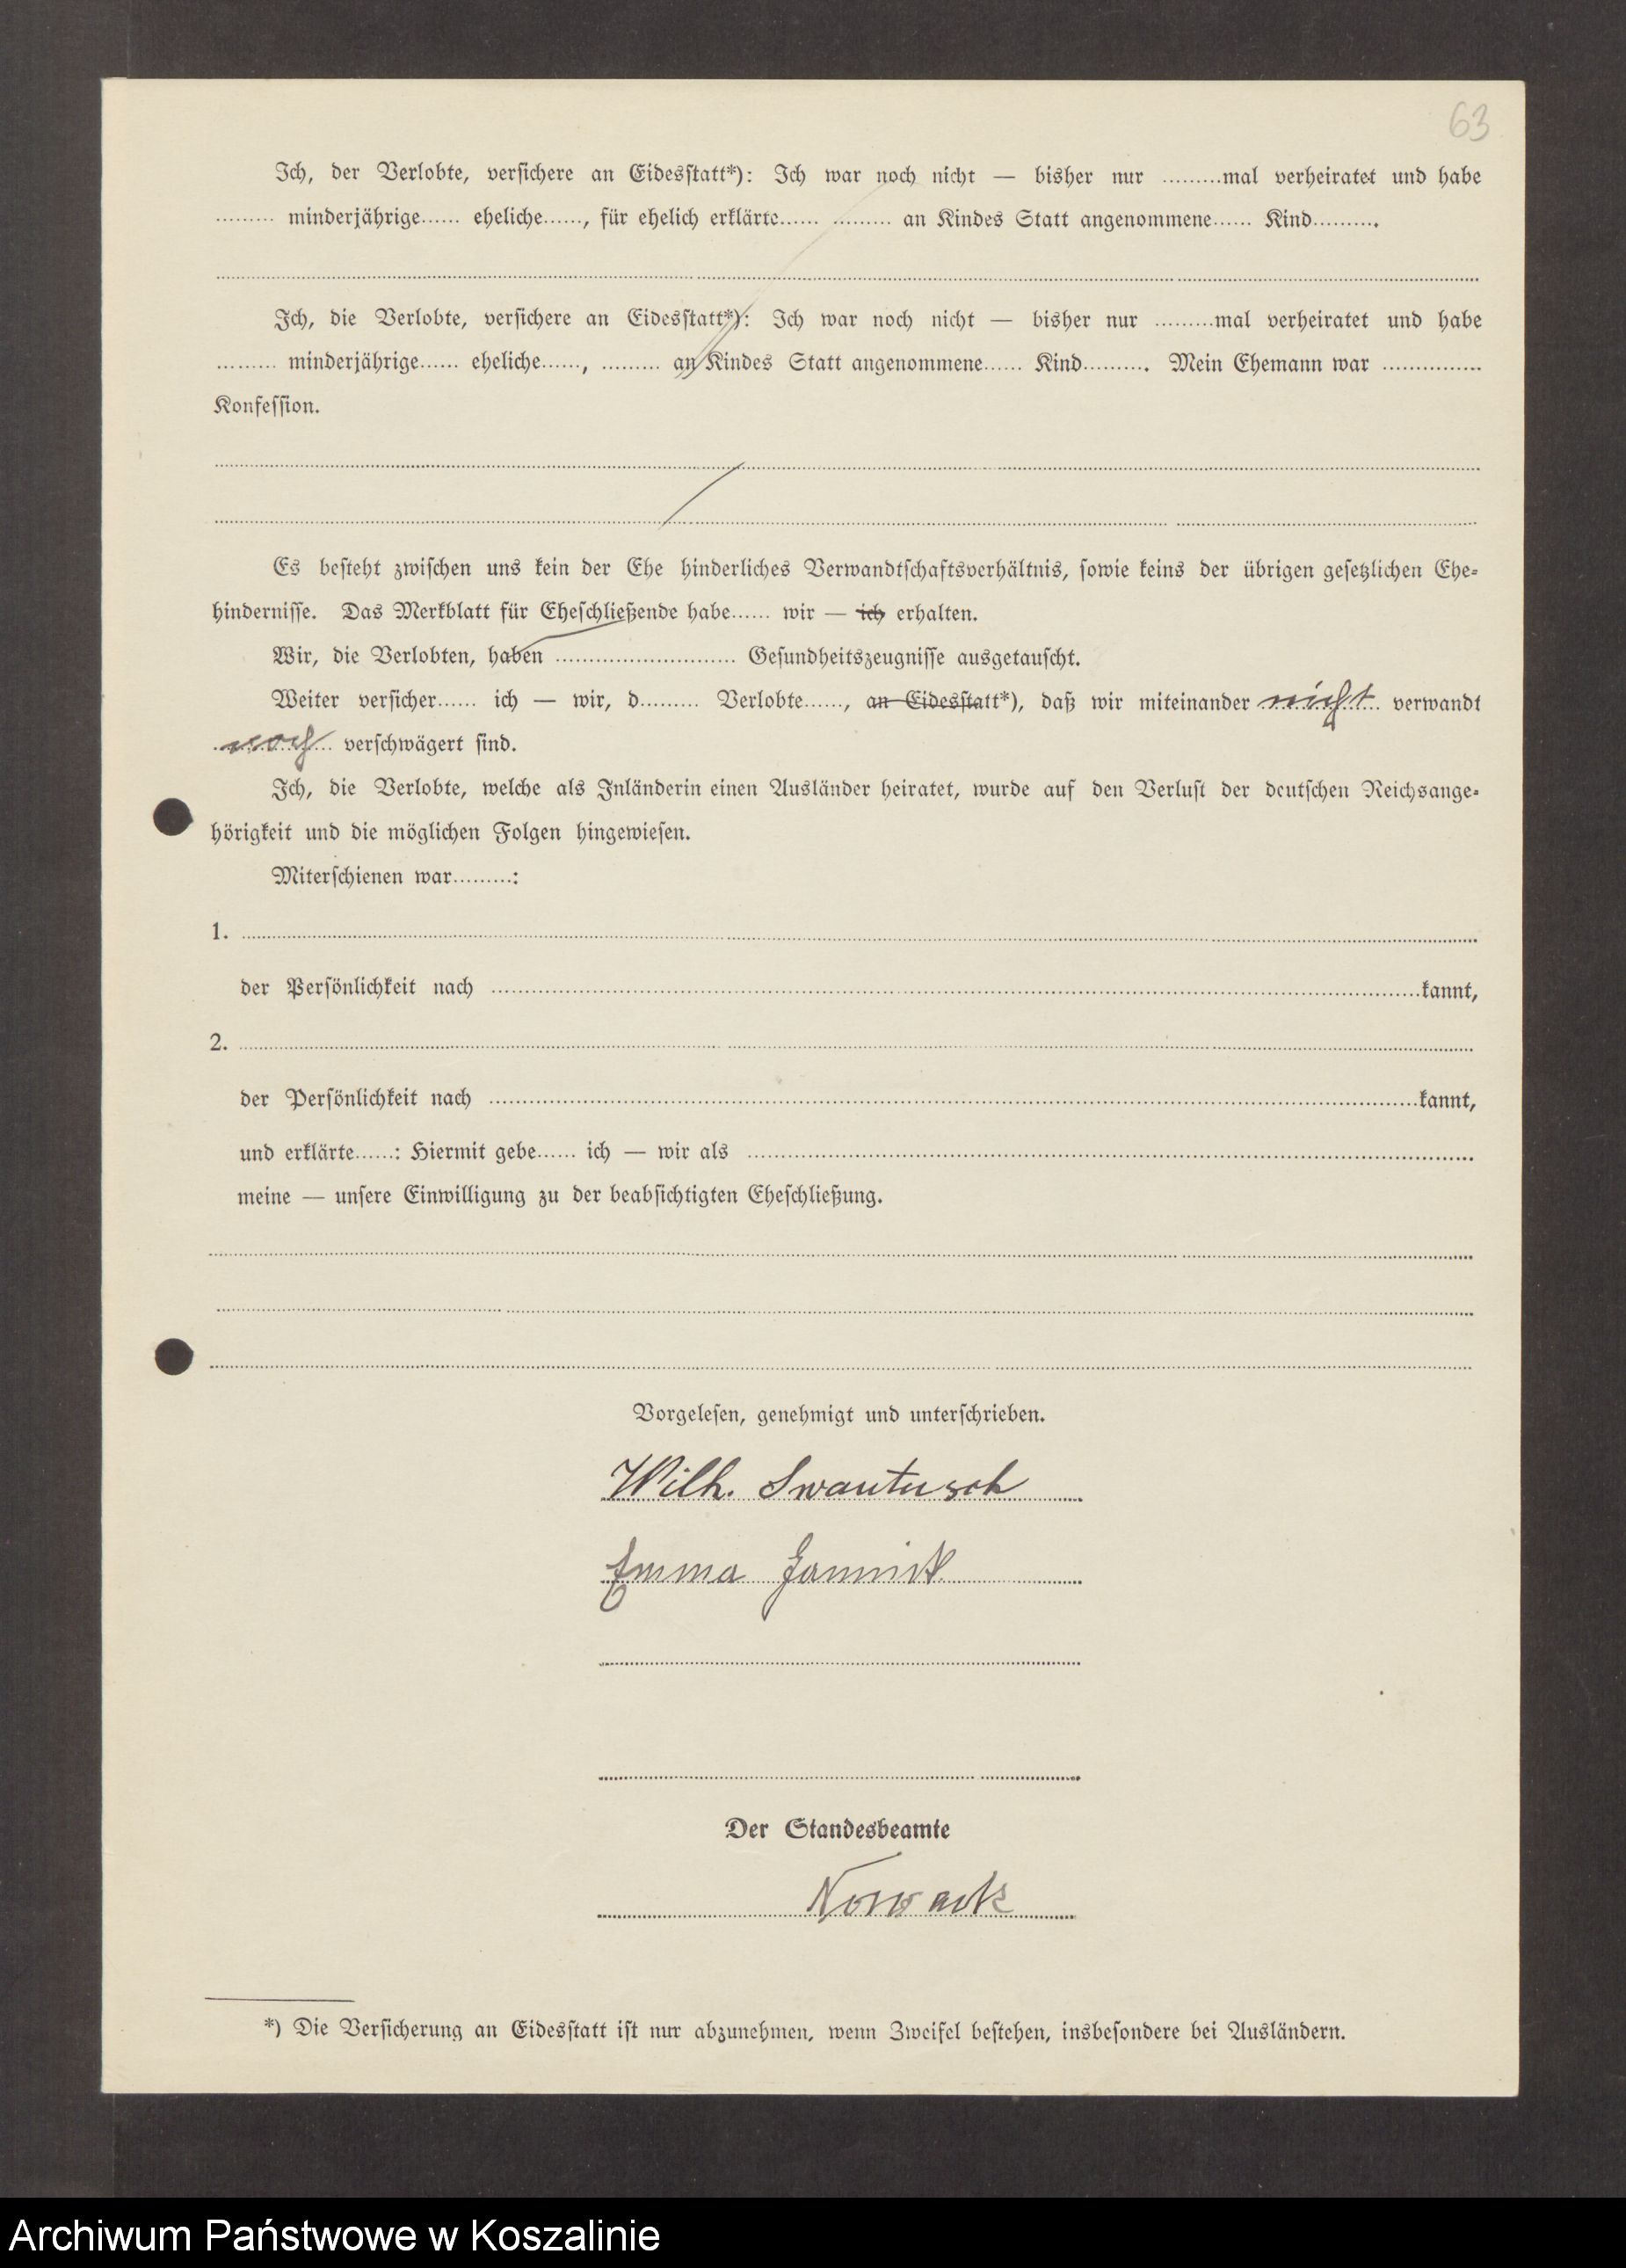 63
Ich, der Verlobte, versichere an Eidesstatt*): Ich war noch nicht — bisher nur .........mal verheiratet und habe
......... minderjährige...... eheliche......, für ehelich erklärte...... ......... an Kindes Statt angenommene...... Kind..........
Ich, die Verlobte, versichere an Eidesstatt*): Ich war noch nicht — bisher nur .........mal verheiratet und habe
......... minderjährige...... eheliche......, ......... an Kindes Statt angenommene...... Kind.......... Mein Ehemann war ...............
Konfession.
Es besteht zwischen uns kein der Ehe hinderliches Verwandtschaftsverhältnis, sowie keins der übrigen gesetzlichen Ehe-
hindernisse. Das Merkblatt für Eheschließende habe...... wir — ich erhalten.
Wir, die Verlobten, haben ........................... Gesundheitszeugnisse ausgetauscht.
Weiter versicher...... ich — wir, d......... Verlobte......, an Eidesstatt*), daß wir miteinander nicht verwandt
noch verschwägert sind.
Ich, die Verlobte, welche als Inländerin einen Ausländer heiratet, wurde auf den Verlust der deutschen Reichsange-
hörigkeit und die möglichen Folgen hingewiesen.
Miterschienen war.........:
1.
der Persönlichkeit nach ...............kannt,
2.
der Persönlichkeit nach ...............kannt,
und erklärte......: Hiermit gebe...... ich — wir als ...............
meine — unsere Einwilligung zu der beabsichtigten Eheschließung.
Vorgelesen, genehmigt und unterschrieben.
Wilh. Swantusch
Emma
Der Standesbeamte
Nowack
*) Die Versicherung an Eidesstatt ist nur abzunehmen, wenn Zweifel bestehen, insbesondere bei Ausländern.
Archiwum Państwowe w Koszalinie